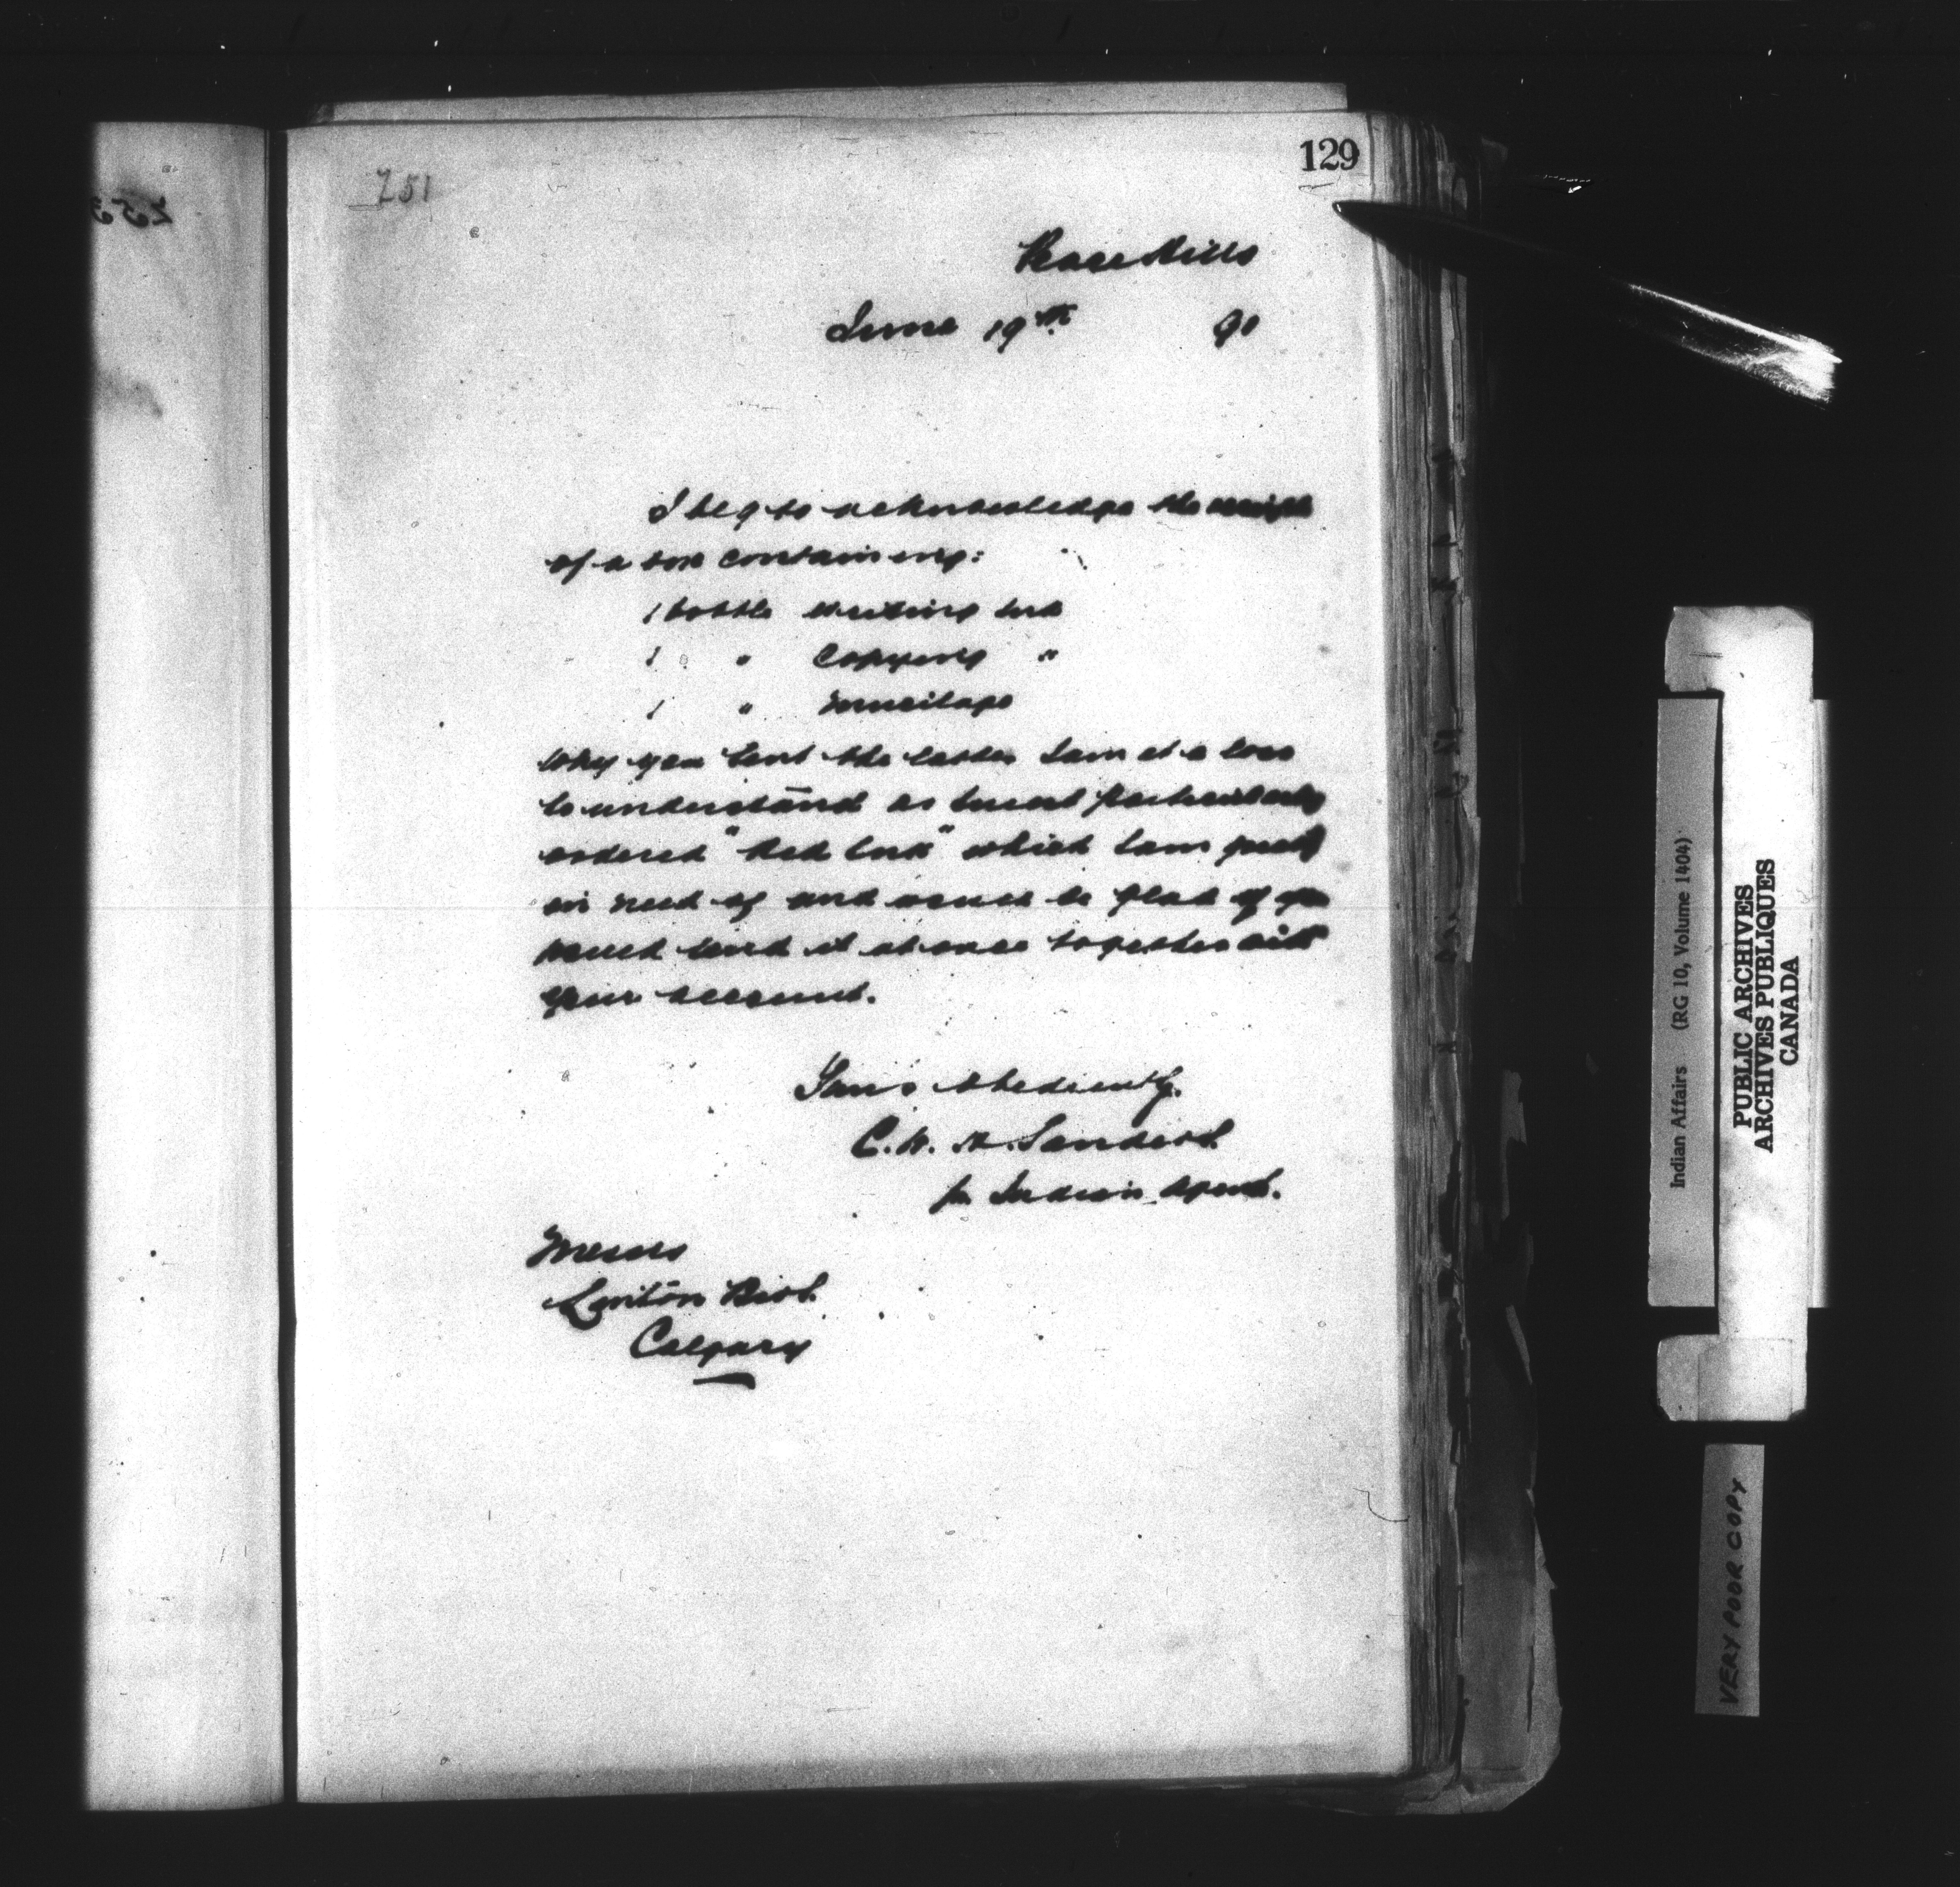 129
251
253
Peace Hills
June 19th 90
I beg to acknowledge the receipt
of a box containing:
1 bottle Writing Ink
1 " Copying "
1 " Mucilage
Why you sent the latter I am at a loss
to understand as I most particularly
ordered "Red Ink" which I am greatly
in need of and would be glad if you
would send it at once together with
your account.
Yours obediently.
C. de
for Indian Agent.
Messrs
Linton Bros.
Calgary
Indian Affairs (RG 10, Volume 1404)
PUBLIC ARCHIVES
ARCHIVES PUBLIQUES
CANADA
VERY POOR COPY